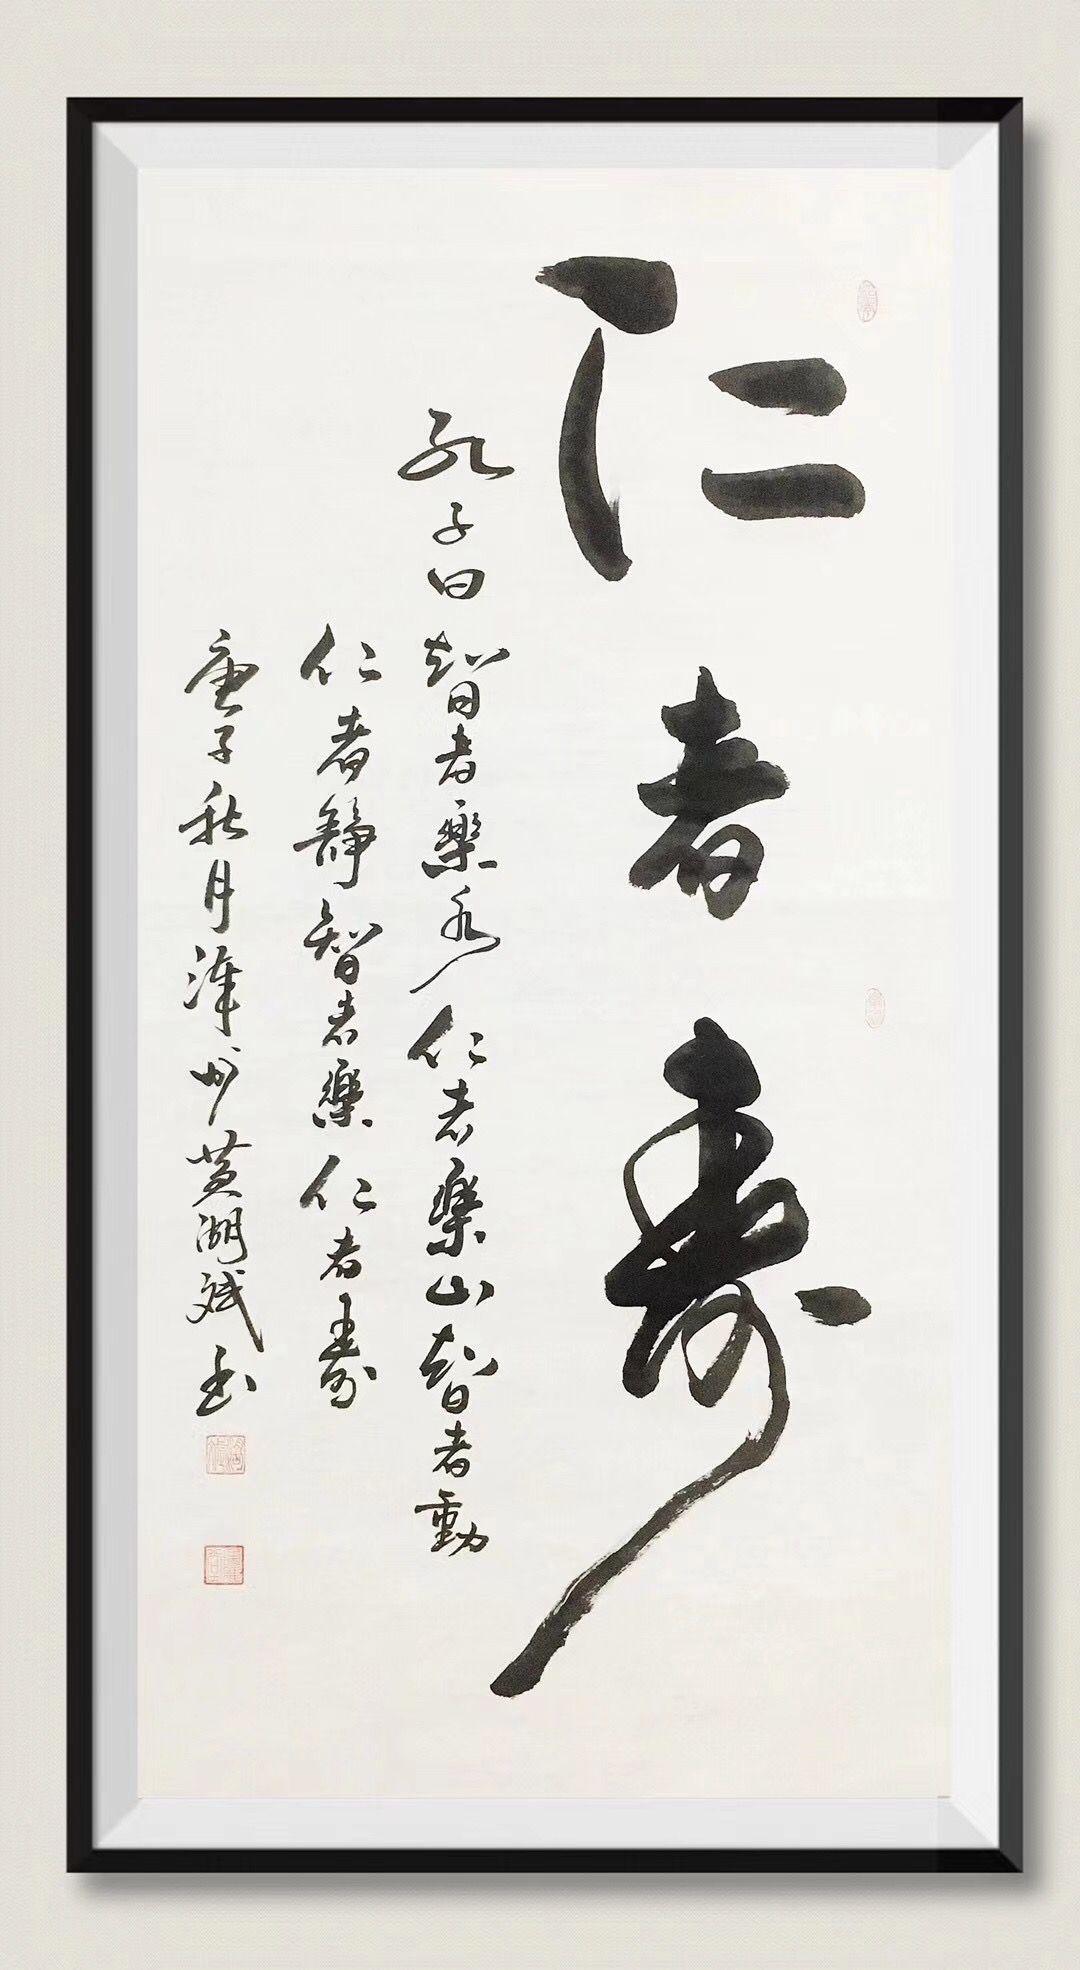 仁者寿
孔子曰智者樂水仁者樂山智者動
仁者静智者樂仁者壽
庚子秋月漳州黄湖斌书